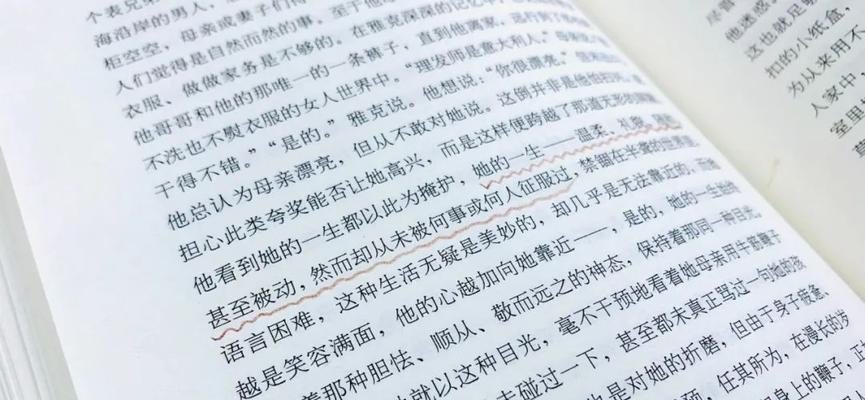 个表兄弟
海沿岸的男人，
柜空空，母亲或妻子们得
人们觉得是自然而然的事。至于他
衣服、做做家务是不够的。在雅克深深的记忆
他哥哥和他的那唯一的一条裤子，直到他离家，
不洗也不熨衣服的女人世界中。“理发师是意大利人。”母亲
干得不错。”“是的。”雅克说。他想说：“你很漂亮。”
他总认为母亲漂亮，但从不敢对她说。这倒并非是他怕
担心此类夸奖能否让她高兴，而是这样便跨越了那道无形的
他看到她的一生都以此为掩护，她的一生——温柔、礼貌、
甚至被动，然而却从未被何事或何人征服过，禁锢在半聋的世界里，
语言困难，这种生活无疑是美妙的，却几乎是无法靠近的，
越是笑容满面，他的心越加向她靠近——，是的，她的一生她
着那种胆怯、顺从、敬而远之的神态，保持着那同一种目光，
就以这种目光，毫不干预地看着她母亲用牛筋鞭子
未碰过一下，甚至都未真正骂过一句她的孩
他是对她的折磨，但由于身子疲惫、
顾，任其所为，在漫长的岁
身上的鞭子，正
尽管
他迷惑
这也就足够
扣的小纸盒，
为从来用不
人家中，
室里